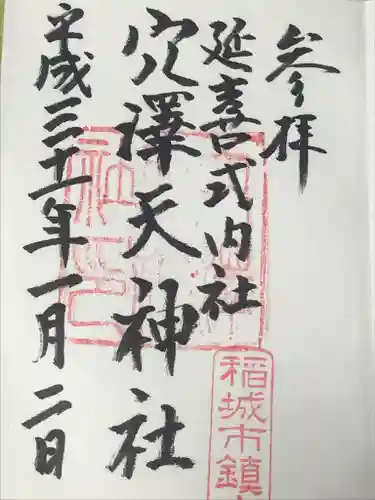 参拝
延喜式内社
穴澤天神社
平成三十一年一月二日
稲城市鎮